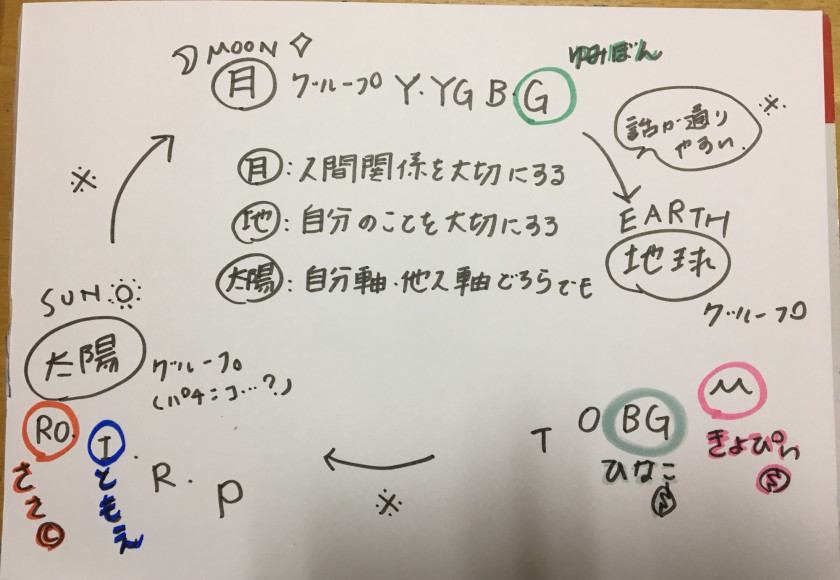 MOON
月 グループ Y.YG B.G
ゆみぽん
話が通り
やすい.
※
※
月:人間関係を大切にする
地:自分のことを大切にする
太陽:自分軸・他人軸どちらでも
EARTH
地球
グループ
SUN
太陽
グループ
(パチンコ…?)
RO.
ささ
C
I.
ともえ
R.
P
※
T
O
BG
ひなこ
M
きよぴい